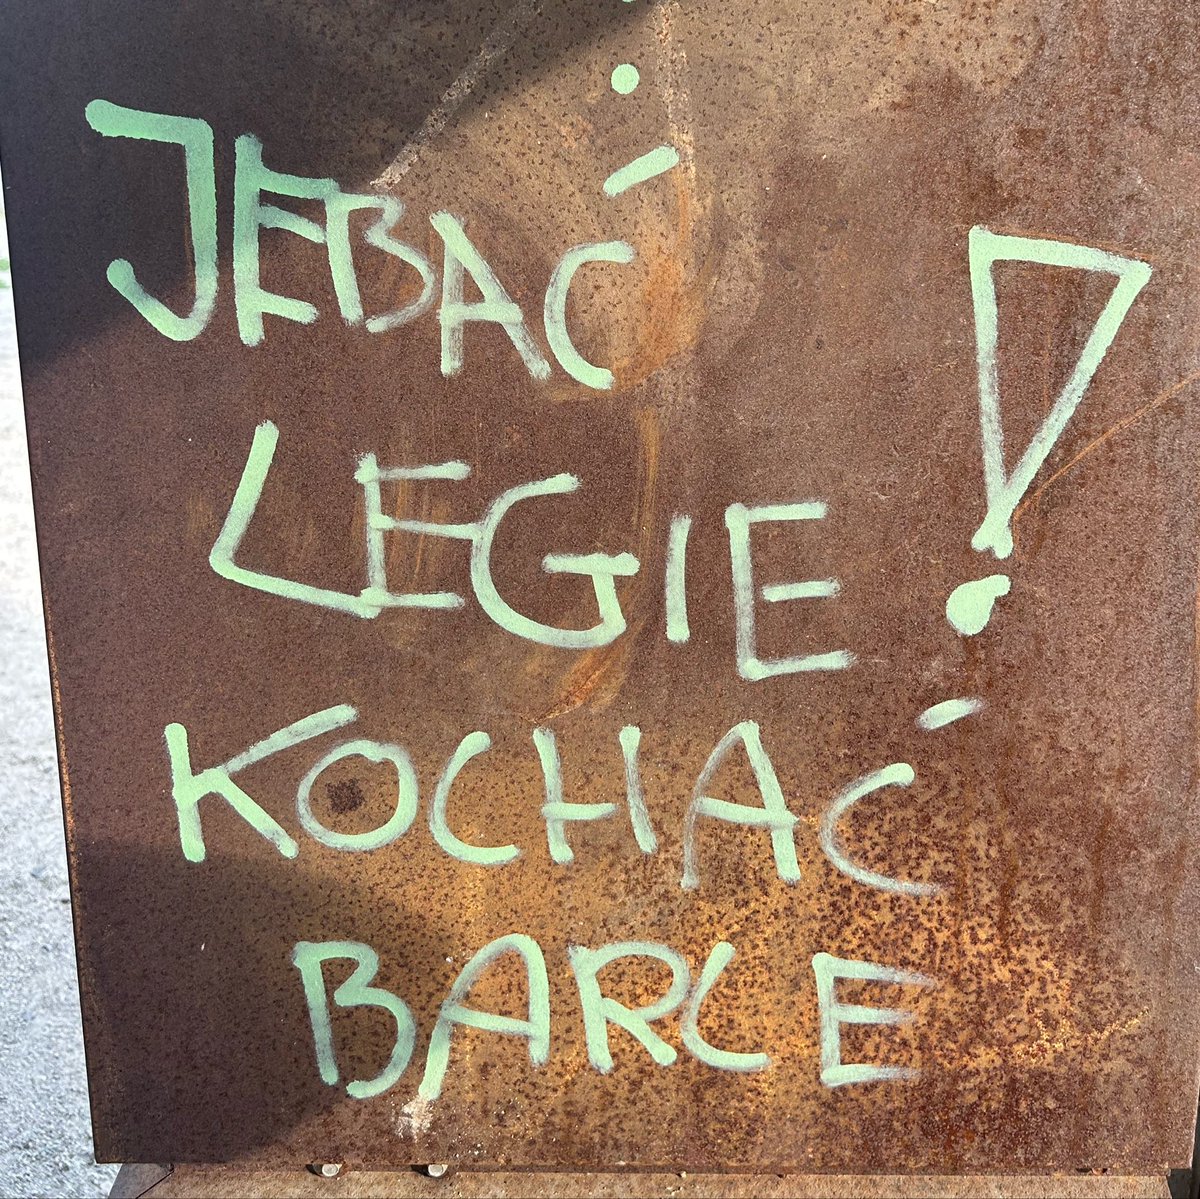 JEBAĆ
LEGIE!
KOCHAĆ
BARCE